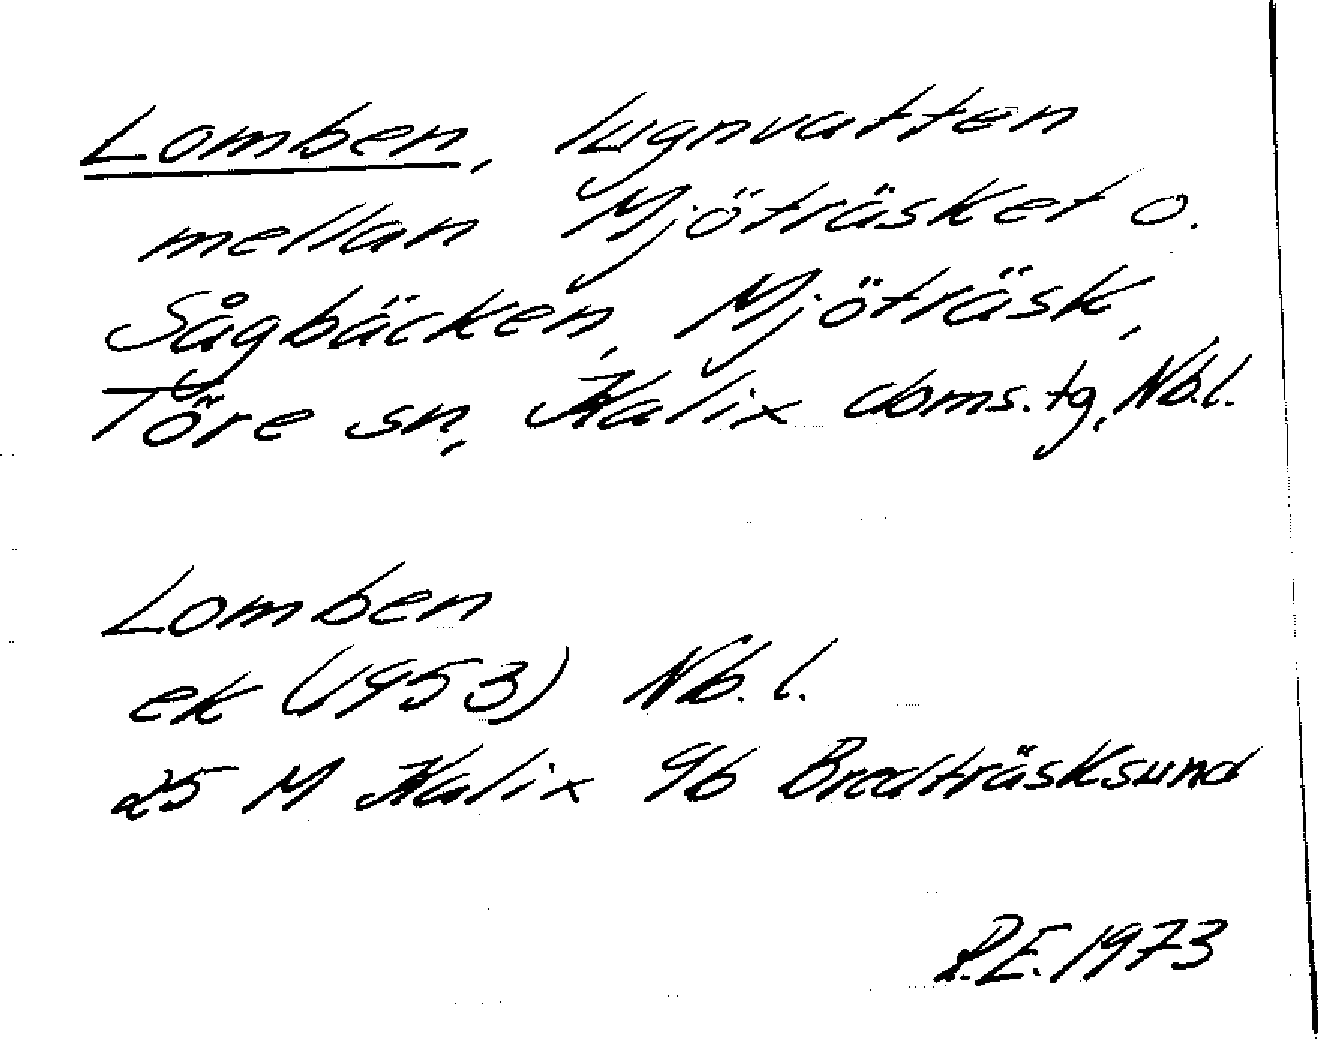 Lomben, lugnvatten
mellan Mjöträsket o.
Sågbäcken, Mjöträsk,
Töre sn, Kalix doms.tg, Nb.l.
Lomben
ek (1953) Nb.l.
25 M Kalix 9b Bredträsksund
R.E. 1973